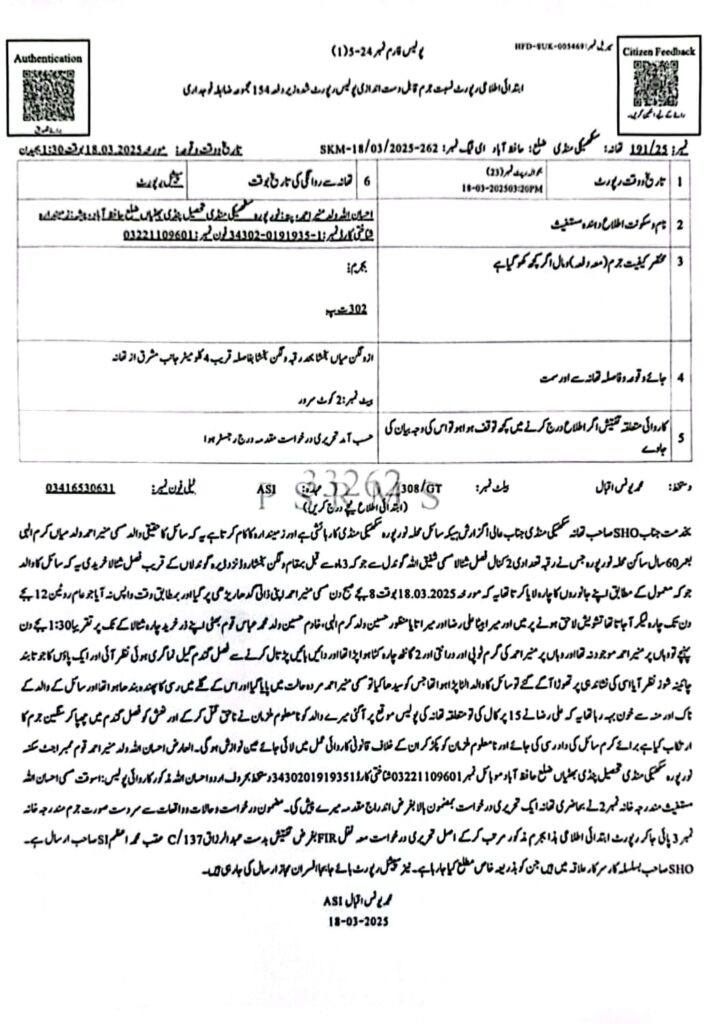 Authentication
برائے تصدیق
پولیس فارم نمبر 24-5(1)
سیریل نمبر: HFD-SUK-005469
Citizen Feedback
برائے رائے دہی اسکین کریں۔
ابتدائی اطلاعی رپورٹ نسبت جرم قابل دست اندازی پولیس رپورٹ شدہ زیر دفعہ 154 مجموعہ ضابطہ فوجداری
نمبر: 191/25 تھانہ: سکھیکی منڈی ضلع: حافظ آباد ای ٹیگ نمبر: SKM-18/03/2025-262 تاریخ و وقت وقوعہ: مورخہ 18.03.2025 بوقت 1:30 بجے دن
1 تاریخ و وقت رپورٹ بحوالہ رپٹ نمبر (23) 18-03-2025 03:20PM 6 تھانہ سے روانگی کی تاریخ و وقت سپیشل رپورٹ
2 نام و سکونت اطلاع دہندہ مستغیث احسان اللہ ولد منیر احمد، پتہ: نور پورہ سکھیکی منڈی تحصیل پنڈی بھٹیاں ضلع حافظ آباد، پیشہ: زمیندارہ
شناختی کارڈ نمبر: 34302-0191935-1 فون نمبر: 03221109601
3 مختصر کیفیت جرم (معہ دفعہ) و مال اگر کچھ کھو گیا ہے بجرم:
302 ت پ
4 جائے وقوعہ و فاصلہ تھانہ سے اور سمت از ونگن میاں بلنشا بعد رقبہ ونگن بلنشا بفاصلہ قریب 4 کلومیٹر جانب مشرق از تھانہ
بیٹ نمبر: 2 کوٹ سرور
5 کاروائی متعلقہ تفتیش اگر اطلاع درج کرنے میں کچھ توقف ہوا ہو تو اس کی وجہ بیان کی جاوے حسب آمد تحریری درخواست مقدمہ درج رجسٹر ہوا
دستخط: محمد یونس اقبال بیلٹ نمبر: 308/GT عہدہ: ASI ٹیلی فون نمبر: 03416530631
33262
PSRMS
(ابتدائی اطلاع نیچے درج کریں)
بخدمت جناب SHO صاحب تھانہ سکھیکی منڈی جناب عالی! گزارش ہیکہ سائل محلہ نور پورہ سکھیکی منڈی کا رہائشی ہے اور زمیندارہ کا کام کرتا ہے یہ کہ سائل کا حقیقی والد مسمی منیر احمد ولد میاں کرم الہی
بعمر 60 سال ساکن محلہ نور پورہ جس نے رقبہ تعدادی 2 کنال فصل شٹالا مسمی شفیق اللہ گوندل سے جو کہ 3 ماہ سے قبل بمقام ونگن بلنشا روڈ نزد ڈیرہ گوندلاں کے قریب فصل شٹالا خریدی یہ کہ سائل کا والد
جو کہ معمول کے مطابق اپنے جانوروں کا چارہ لایا کرتا تھا یہ کہ مورخہ 18.03.2025 بوقت 8 بجے صبح دن مسمی منیر احمد اپنی ذاتی گدھا ریڑھی پر گیا اور بمطابق وقت واپس نہ آیا جو عام روٹین 12 بجے
دن تک چارہ لیکر آ جاتا تھا تشویش لاحق ہونے پر میں اور میرا بیٹا علی رضا اور میرا تایا منظور حسین ولد کرم الہی، خادم حسین ولد محمد عباس قوم بھٹی اپنے زر خرید چارہ شٹالا کے تک پر تقریبا 1:30 بجے دن
پہنچے تو وہاں پر منیر احمد موجود نہ تھا اور وہاں پر منیر احمد کی گرم ٹوپی اور درانتی اور 2 گانٹھ چارہ کٹا ہوا پڑا تھا اور دائیں بائیں پڑتال کرنے سے فصل گندم گیلی نما گری ہوئی نظر آئی اور ایک پاؤں کا جوتا بند
چائینہ شوز نظر آیا اسی کی نشاندہی پر تھوڑا آگے گئے تو سائل کا والد الٹا پڑا ہوا تھا جس کو سیدھا کیا تو مسمی منیر احمد مردہ حالت میں پایا گیا اور اس کے گلے میں رسی کا پھندہ بندھا ہوا تھا اور سائل کے والد کے
ناک اور منہ سے خون بہہ رہا تھا یہ کہ علی رضا نے 15 پر کال کی تو متعلقہ تھانہ کی پولیس موقع پر آگئی میرے والد کو نامعلوم ملزمان نے ناحق قتل کر کے اور نعش کو فصل گندم میں چھپا کر سنگین جرم کا
ارتکاب کیا ہے برائے کرم سائل کی دادرسی کی جائے اور نامعلوم ملزمان کو پکڑ کر ان کے خلاف قانونی کاروائی عمل میں لائی جائے عین نوازش ہوگی۔ العارض احسان اللہ ولد منیر احمد قوم ممبر اجٹ سکنہ
نور پورہ سکھیکی منڈی تحصیل پنڈی بھٹیاں ضلع حافظ آباد موبائل نمبر 03221109601 شناختی کارڈ 3430201919351 دستخط بحروف اردو احسان اللہ مذکور کاروائی پولیس: اسوقت مسمی احسان اللہ
مستغیث مندرجہ خانہ نمبر 2 نے بحاضری تھانہ ایک تحریری درخواست بمضمون بالا بغرض اندراج مقدمہ میرے پیش کی۔ مضمون درخواست و حالات و واقعات سے سردست صورت جرم مندرجہ خانہ
نمبر 3 پائی جا کر رپورٹ ابتدائی اطلاعی ہذا بجرم مذکور مرتب کر کے اصل تحریری درخواست معہ نقل FIR بغرض تفتیش بدست عبدالرزاق 137/C عقب محمد اعظم SI صاحب ارسال ہے۔
SHO صاحب بسلسلہ کار سرکار علاقہ میں ہیں جن کو بذریعہ خاص مطلع کیا جا رہا ہے۔ نیز سپیشل رپورٹ ہائے جا بجا افسران مجاز ارسال کی جارہی ہیں۔
محمد یونس اقبال ASI
18-03-2025